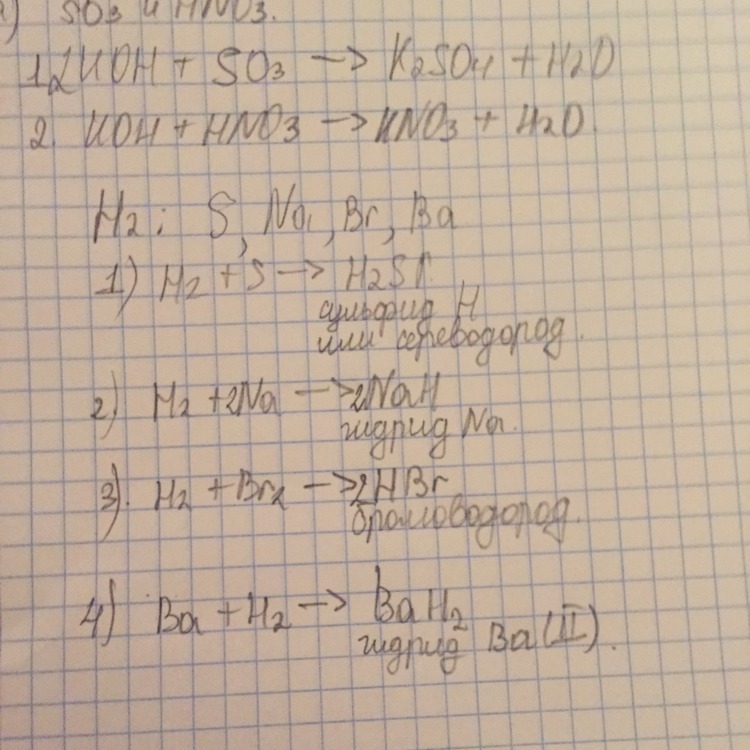 SO3 и HNO3.
1. 2KOH + SO3 → K2SO4 + H2O
2. KOH + HNO3 → KNO3 + H2O.
H2: S, Na, Br, Ba
1) H2 + S → H2S↑
сульфид H
или сереводород.
2) H2 + 2Na → 2NaH
гидрид Na.
3). H2 + Br2 → 2HBr
бромоводород.
4) Ba + H2 → BaH2
гидрид Ba(II).